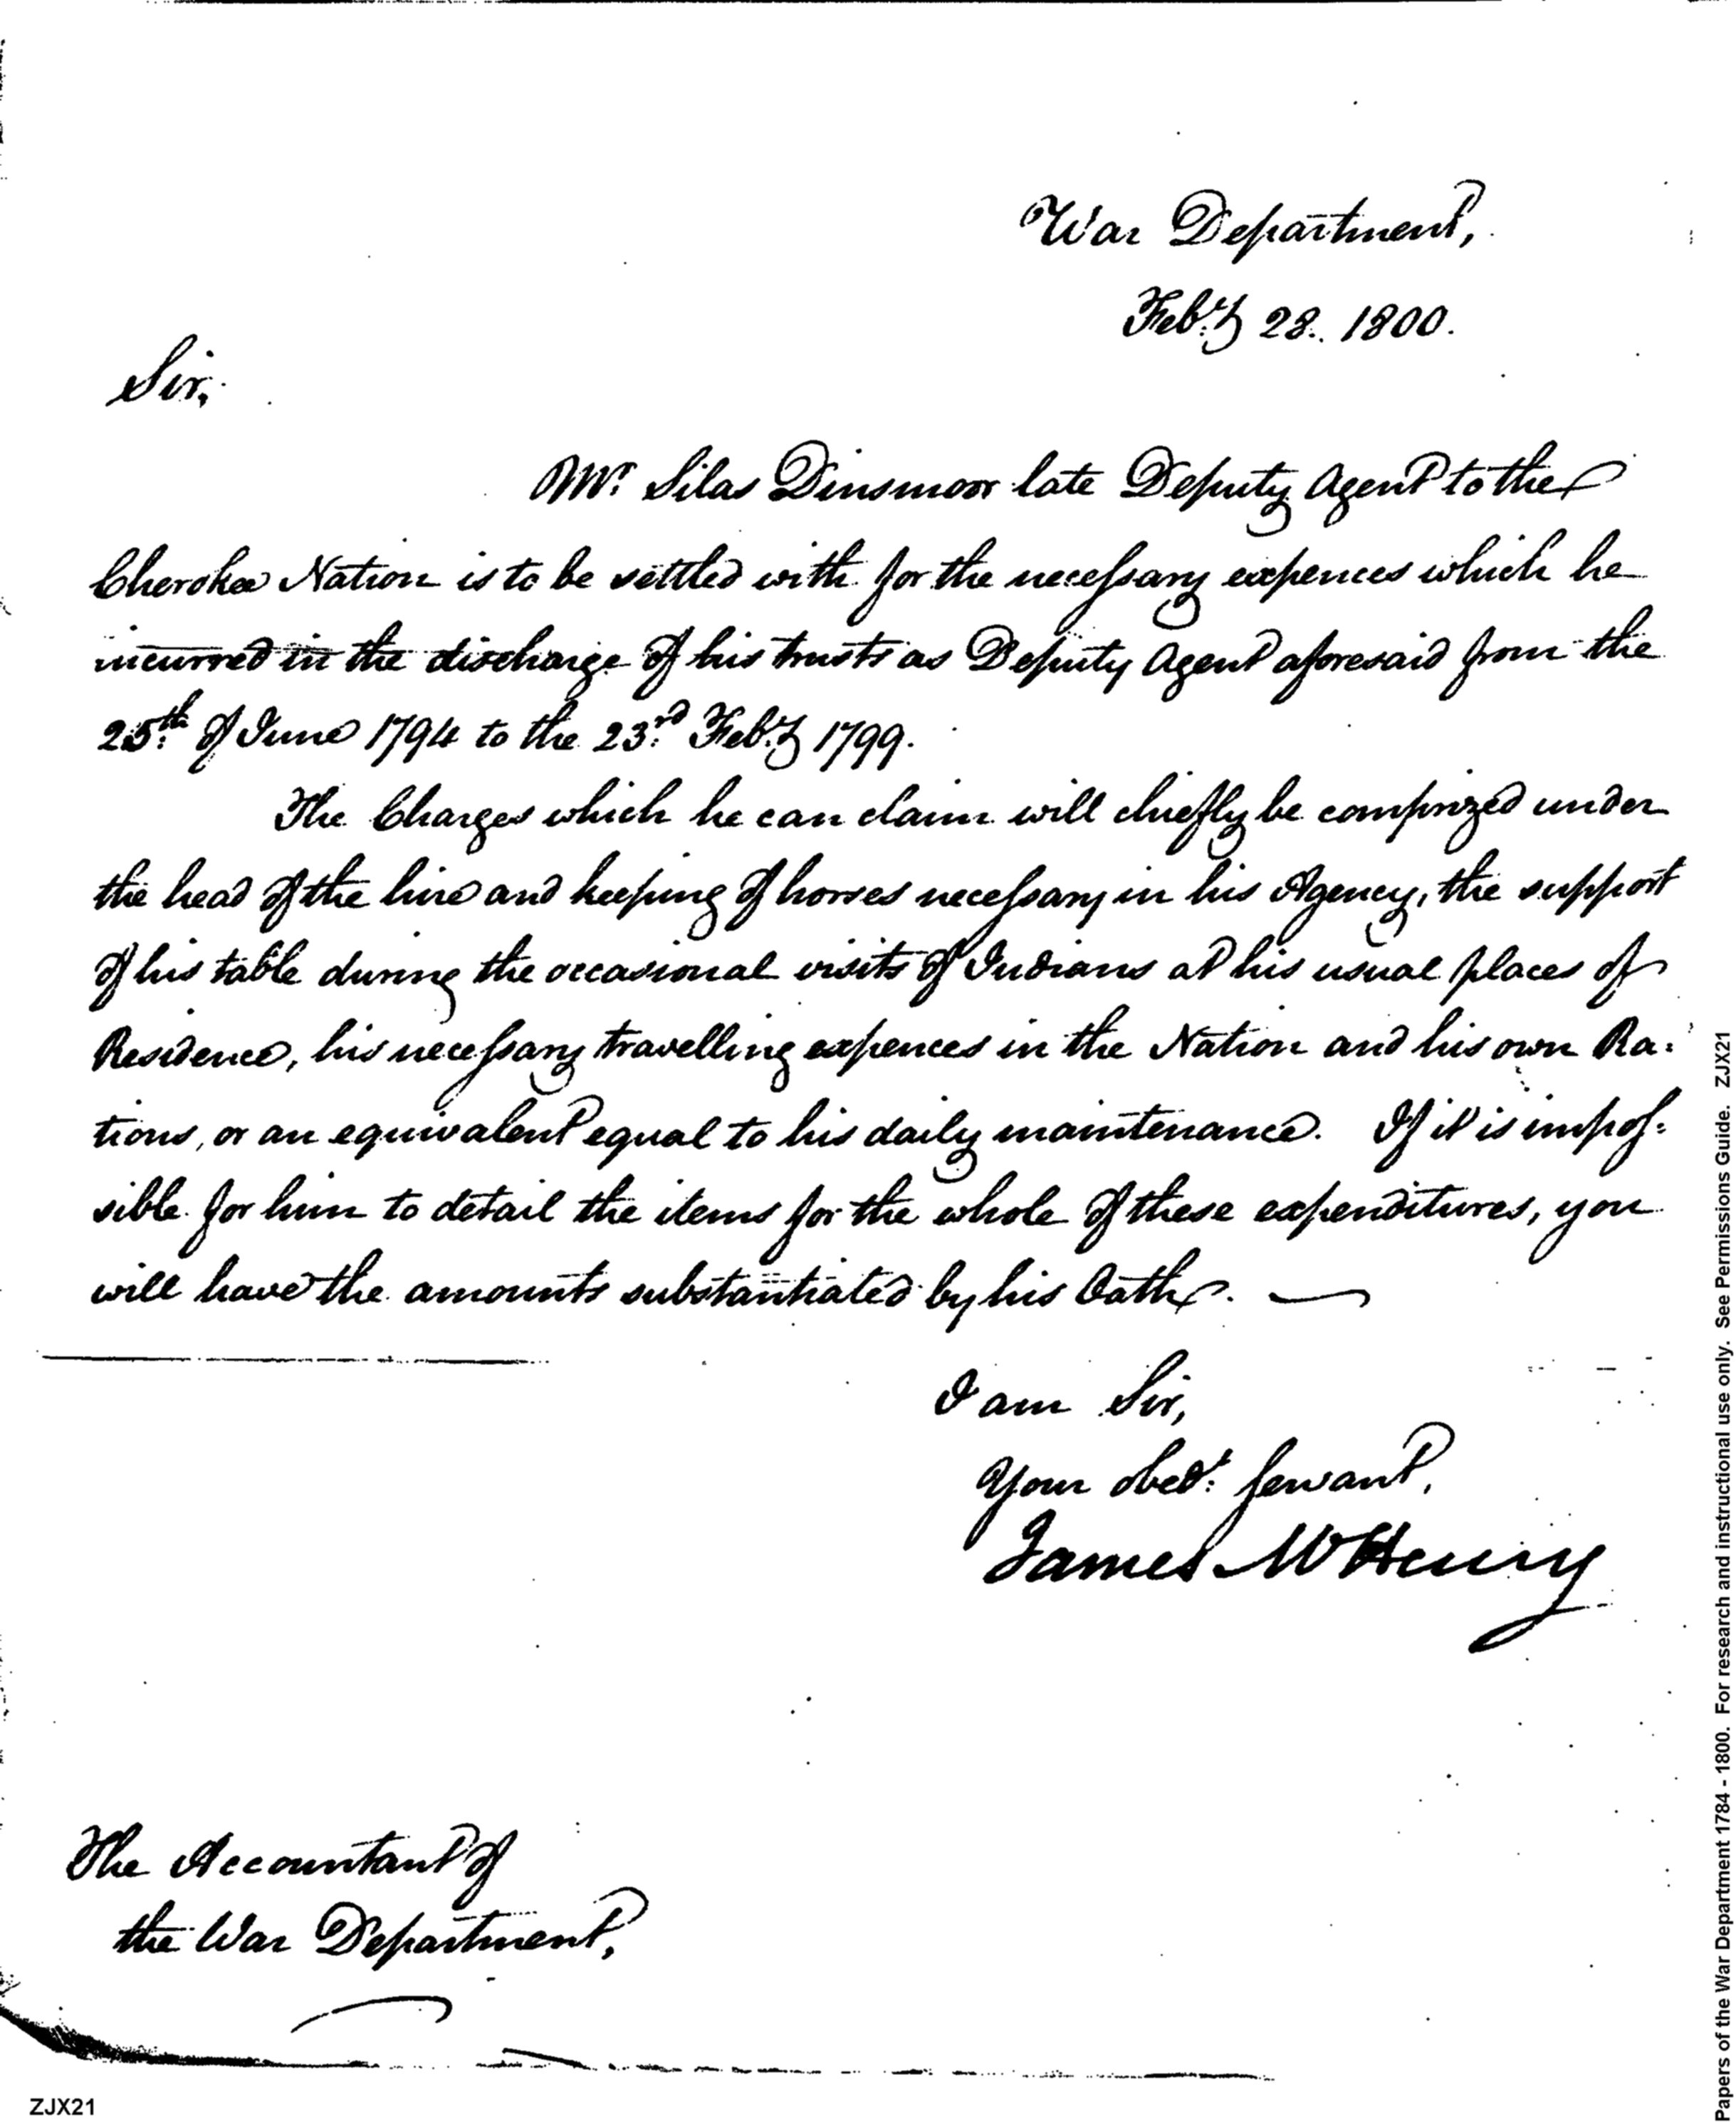 War Department,
Feb.y 28. 1800.
Sir,
Mr. Silas Dinsmoor late Deputy Agent to the
Cherokee Nation is to be settled with for the necessary expences which he
incurred in the discharge of his trusts as Deputy Agent aforesaid from the
25.th of June 1794 to the 23.rd Feb.y 1799.
The Charges which he can claim will chiefly be comprized under
the head of the hire and keeping of horses necessary in his Agency, the support
of his table during the occasional visits of Indians at his usual places of
Residence, his necessary travelling expences in the Nation and his own Ra=
tions, or an equivalent equal to his daily maintenance. If it is impos=
sible for him to detail the items for the whole of these expenditures, you
will have the amounts substantiated by his Oath.
I am Sir,
Your obed.t Servant,
James McHenry
The Accountant of
the War Department,
ZJX21
Papers of the War Department 1784 - 1800. For research and instructional use only. See Permissions Guide. ZJX21